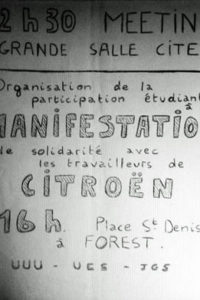 2 h 30 MEETIN
GRANDE SALLE CITE
Organisation de la
participation étudiant
à
MANIFESTATIO
de solidarité avec
les travailleurs de
CITROËN
16 h. Place St Denis
à FOREST.
UUU - UES - JGS